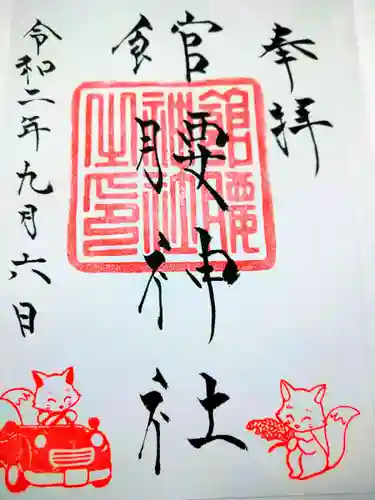 奉拝
館腰神社
令和二年九月六日
館腰
神社
之印